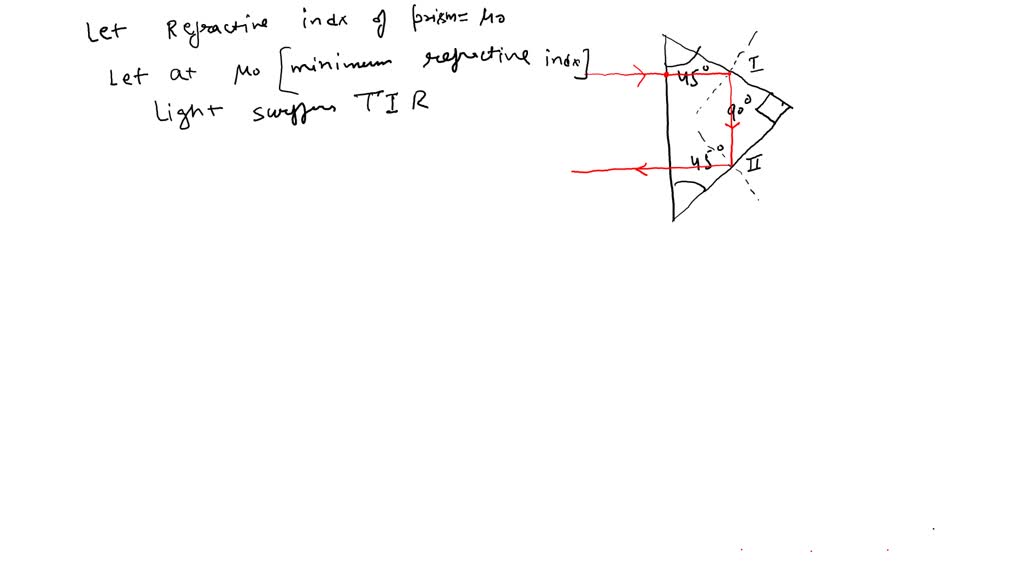 Let Refractive indx of prism = μo
Let at μo [minimum refractive indx]
Light suffers TIR
I
45°
90°
45°
II